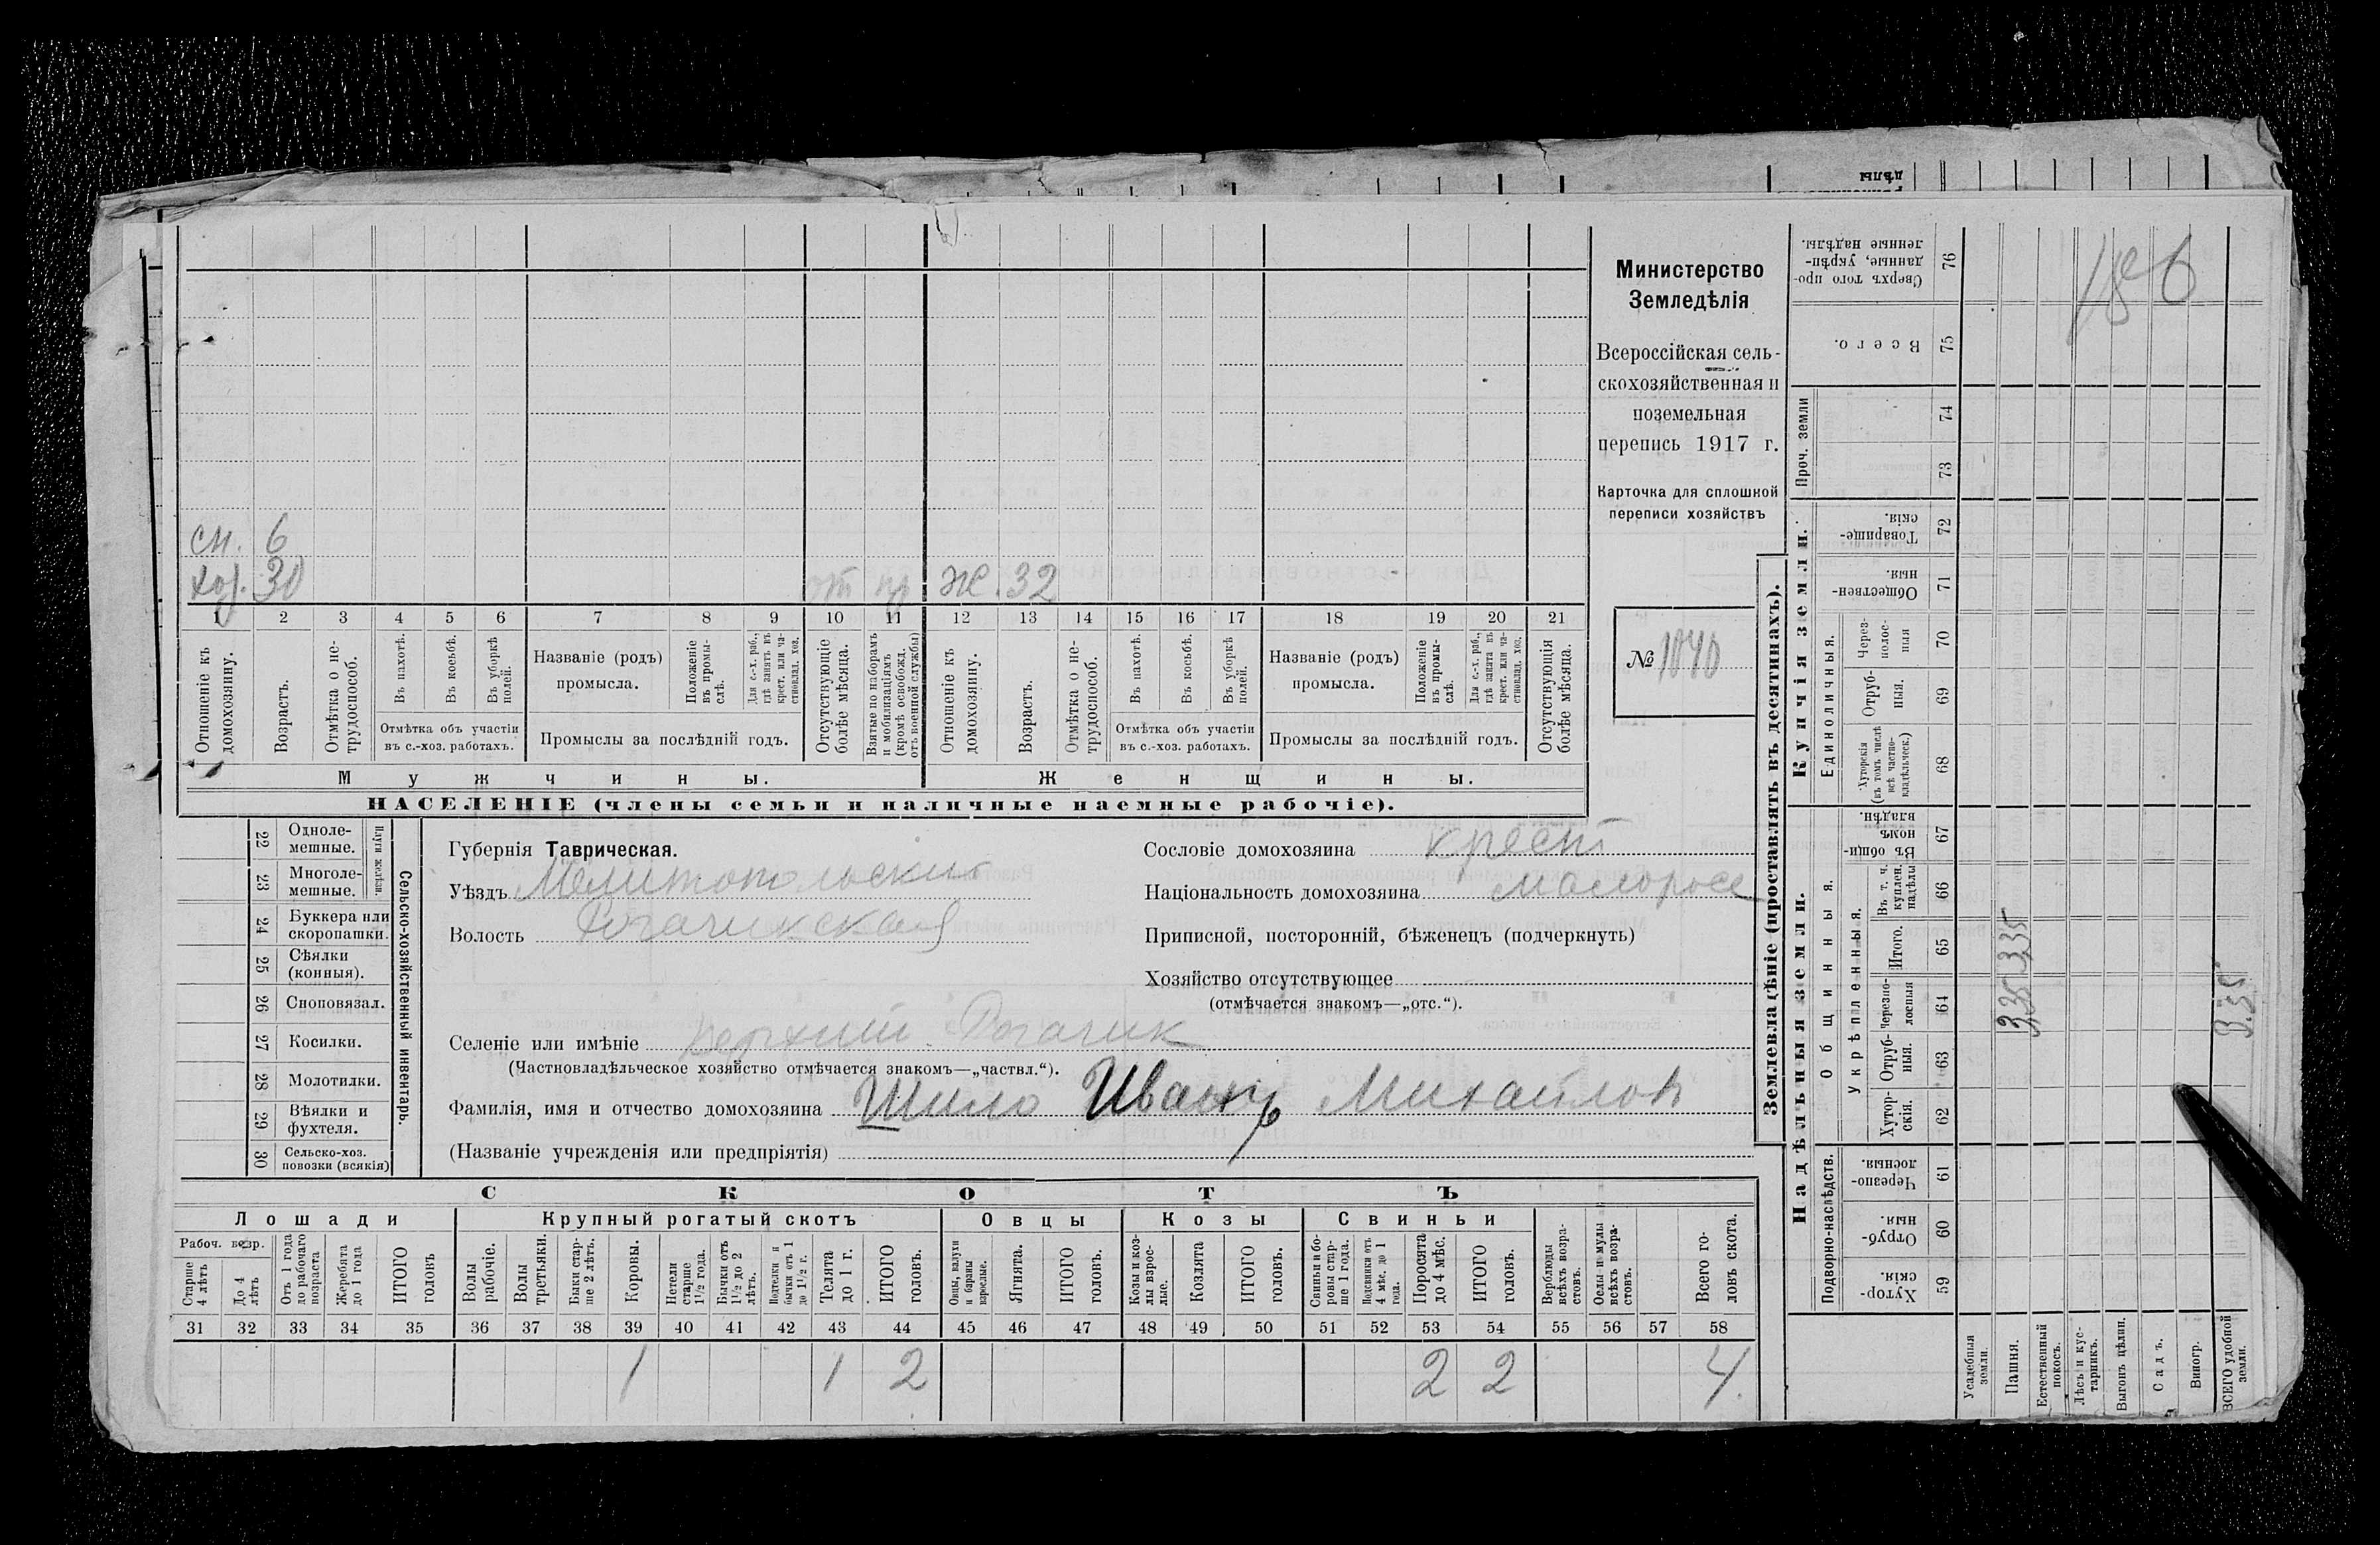 дѣлы
сн. 6
хоз. 30 от пр ж. 32
1 2 3 4 5 6 7 8 9 10 11 12 13 14 15 16 17 18 19 20 21
Отношеніе къ домохозяину.
Возрастъ.
Отмѣтка о не-трудоспособ.
Въ пахотѣ.
Въ косьбѣ.
Въ уборкѣ полей.
Отмѣтка объ участіи
въ с.-хоз. работахъ.
Названіе (родъ)
промысла.
Положеніе въ промы-слѣ.
Для с.-х. раб., гдѣ занятъ въ крест. или ча-стновлад. хоз.
Промыслы за послѣдній годъ.
Отсутствующіе болѣе мѣсяца.
Взятые по наборамъ и мобилизаціямъ (кромѣ освобожд. отъ военной службы)
Отношеніе къ домохозяину.
Возрастъ.
Отмѣтка о не-трудоспособ.
Въ пахотѣ.
Въ косьбѣ.
Въ уборкѣ полей.
Отмѣтка объ участіи
въ с.-хоз. работахъ.
Названіе (родъ)
промысла.
Положеніе въ промы-слѣ.
Для с.-х. раб., гдѣ занята въ крест. или ча-стновлад. хоз.
Промыслы за послѣдній годъ.
Отсутствующія болѣе мѣсяца.
Мужчины.
Женщины.
НАСЕЛЕНІЕ (члены семьи и наличные наемные рабочіе).
Министерство
Земледѣлія
Всероссійская сель-
скохозяйственная и
поземельная
перепись 1917 г.
Карточка для сплошной
переписи хозяйствъ
№ 1040
22 Одноле-мешные.
23 Многоле-мешные.
Плуги желѣзн.
24 Буккера или скоропашки.
25 Сѣялки (конныя).
26 Сноповязал.
27 Косилки.
28 Молотилки.
29 Вѣялки и фухтеля.
30 Сельско-хоз. повозки (всякія)
Сельско-хозяйственный инвентарь.
Губернія Таврическая.
Уѣздъ Мелитопольский
Волость Рогачикская
Селеніе или имѣніе Верхний Рогачик
(Частновладѣльческое хозяйство отмѣчается знакомъ—„частвл.“).
Фамилія, имя и отчество домохозяина Шило Иванъ Михайлов
(Названіе учрежденія или предпріятія)
Сословіе домохозяина крест
Національность домохозяина малоросс
Приписной, посторонній, бѣженецъ (подчеркнуть)
Хозяйство отсутствующее
(отмѣчается знакомъ—„отс.“).
СКОТЪ
Лошади
Крупный рогатый скотъ
Овцы
Козы
Свиньи
Рабоч. возр.
Старше 4 лѣтъ
До 4 лѣтъ
Отъ 1 года до рабочаго возраста
Жеребята до 1 года
ИТОГО головъ
Волы рабочіе.
Волы третьяки.
Быки стар-ше 2 лѣтъ.
Коровы.
Нетели старше 1½ года.
Бычки отъ 1½ до 2 лѣтъ.
Подтелки и бычки отъ 1 до 1½ г.
Телята до 1 г.
ИТОГО головъ.
Овцы, валухи и бараны взрослые.
Ягнята.
ИТОГО головъ.
Козы и коз-лы взрос-лые.
Козлята
ИТОГО головъ.
Свиньи и бо-ровы стар-ше 1 года.
Подсвинки отъ 4 мѣс. до 1 года.
Поросята до 4 мѣс.
ИТОГО головъ.
Верблюды всѣхъ возра-стовъ.
Ослы и мулы всѣхъ возра-стовъ.
Всего го-ловъ скота.
31 32 33 34 35 36 37 38 39 40 41 42 43 44 45 46 47 48 49 50 51 52 53 54 55 56 57 58
1 1 2 2 2 4
Землевладѣніе (проставлять въ десятинахъ).
Надѣльныя земли.
Купчія земли.
Проч. земли
Подворно-наслѣдств.
Общинныя.
Укрѣпленныя.
Единоличныя.
59 Хутор-скія.
60 Отруб-ныя.
61 Черезпо-лосныя.
62 Хутор-скія.
63 Отруб-ныя.
64 Черезпо-лосныя
65 Итого.
66 Въ т. ч. куплен. надѣлы
67 Въ общи-номъ владѣн.
68 Хуторскія (въ томъ числѣ всѣ частно-владѣльческ.)
69 Отруб-ныя.
70 Через-полос-ныя
71 Обществен-ныя.
72 Товарище-скія.
73
74
75 Всего.
76 Сверхъ того про-данные, укрѣп-ленные надѣлы.
Усадебныя земли.
Пашня.
Естественный покосъ.
Лѣсъ и кус-тарникъ.
Выгонъ цѣлин.
Садъ.
Виногр.
ВСЕГО удобной земли.
3,35 3,35
3.35